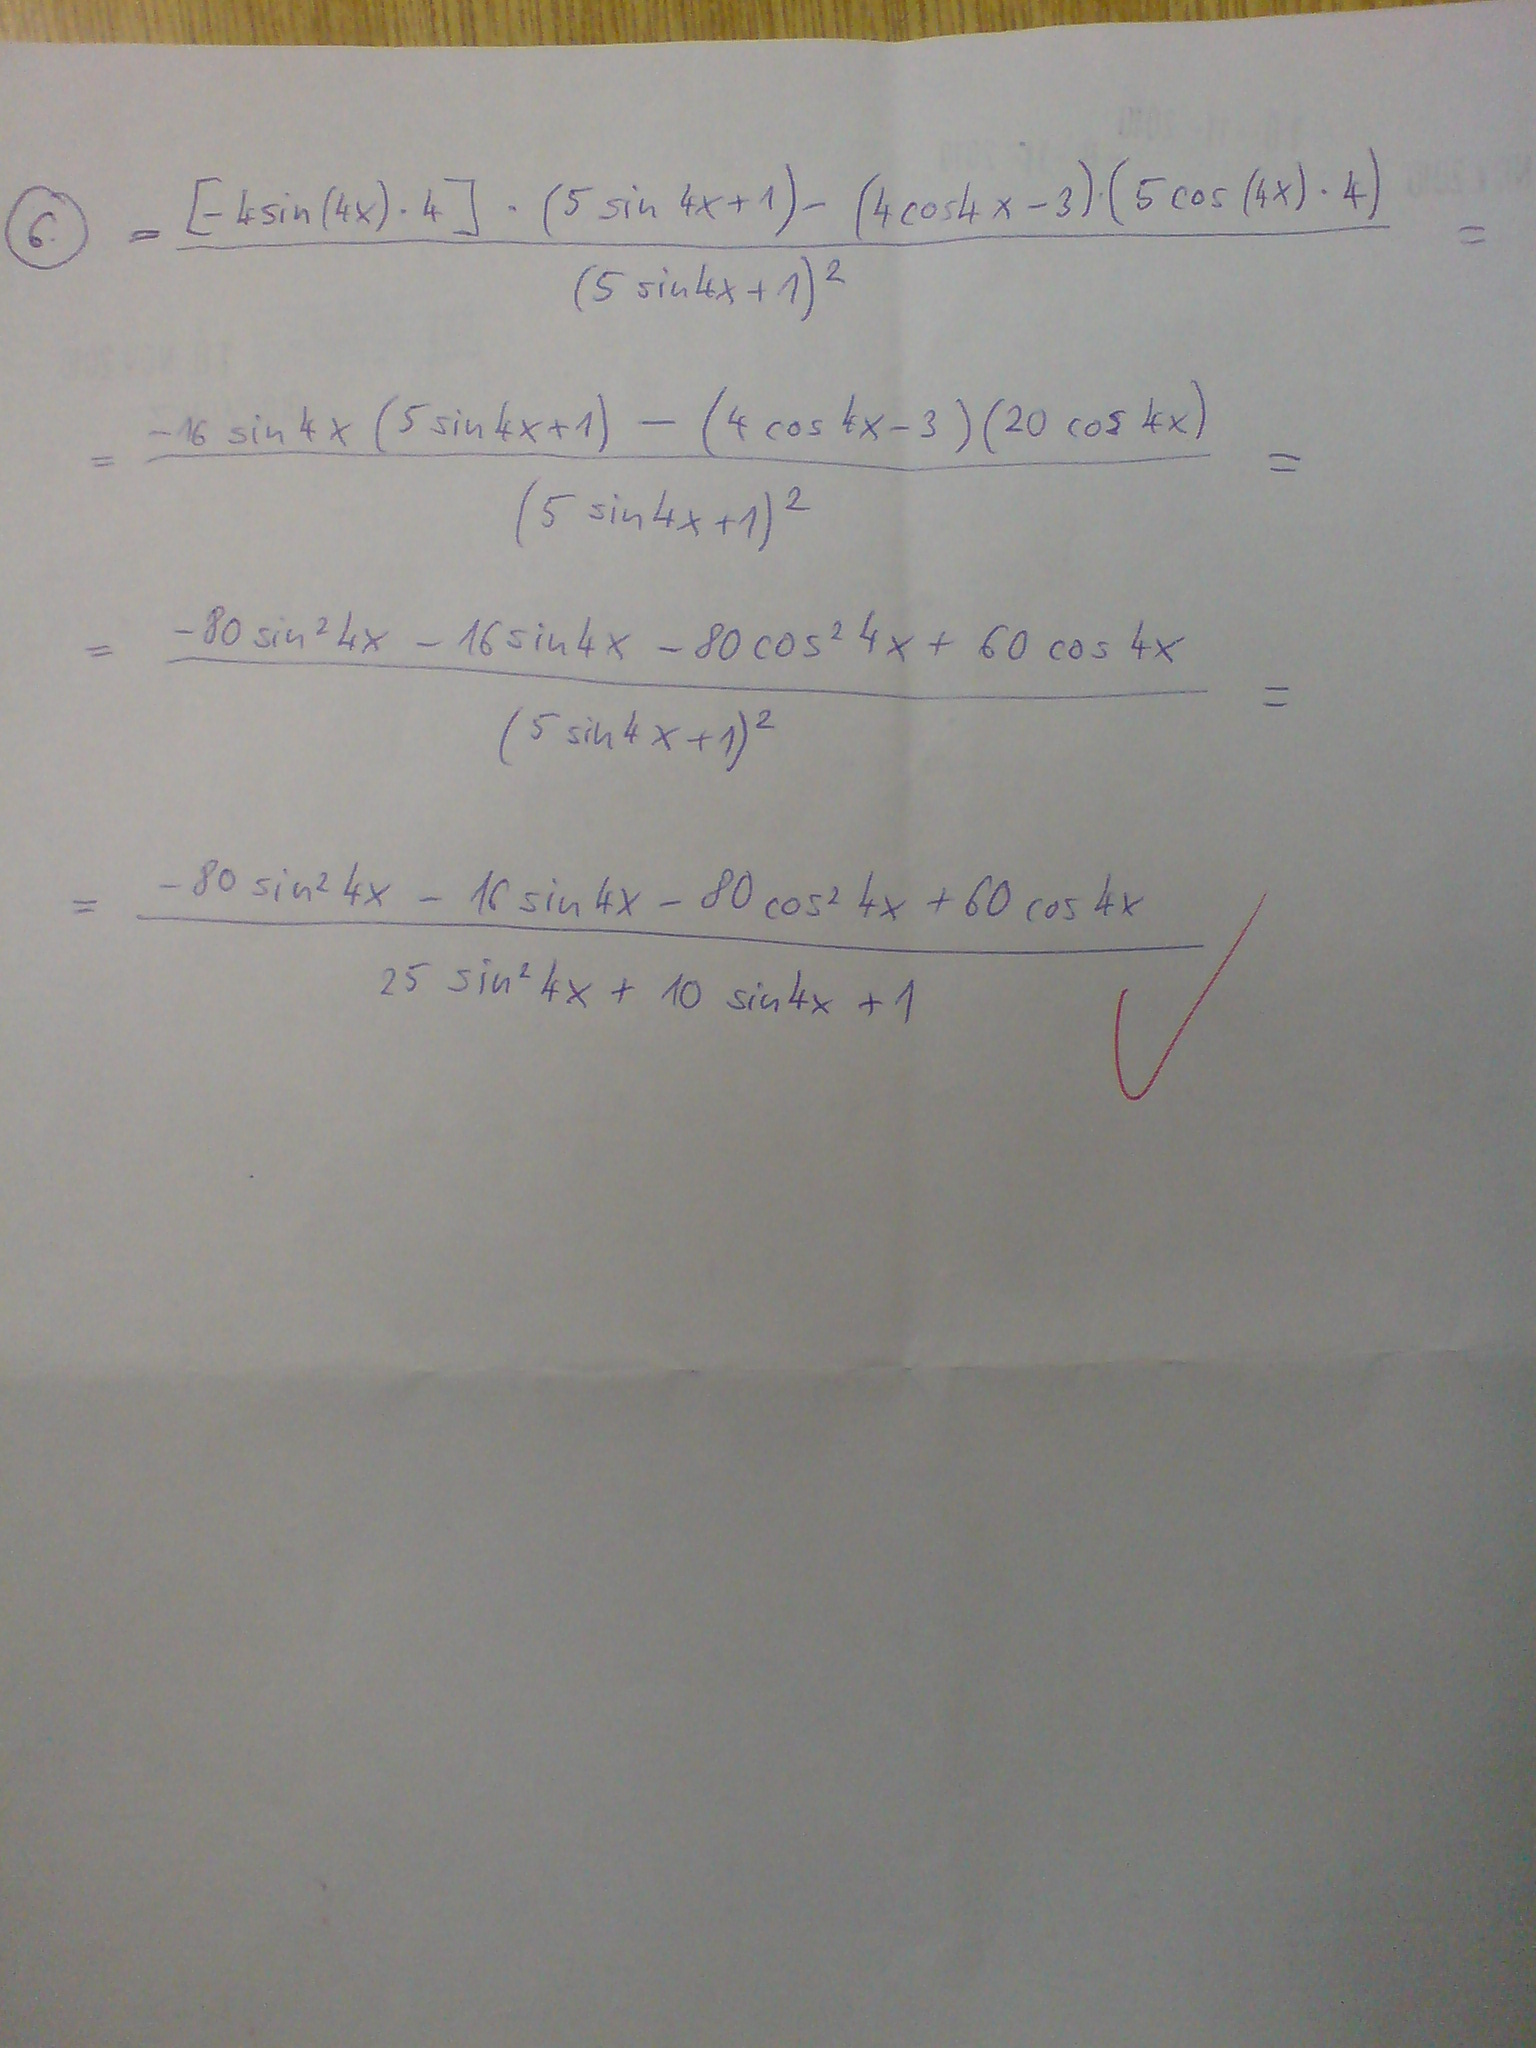 6. = [-4sin(4x)·4]·(5 sin 4x+1)-(4cos4x-3)·(5cos(4x)·4) =
(5 sin4x+1)²
= -16 sin4x (5sin4x+1) - (4 cos 4x-3)(20 cos 4x) =
(5 sin4x+1)²
= -80sin²4x - 16sin4x - 80cos²4x + 60 cos 4x =
(5 sin4x+1)²
= -80 sin²4x - 16 sin4x - 80 cos²4x + 60 cos 4x
25 sin²4x + 10 sin4x + 1